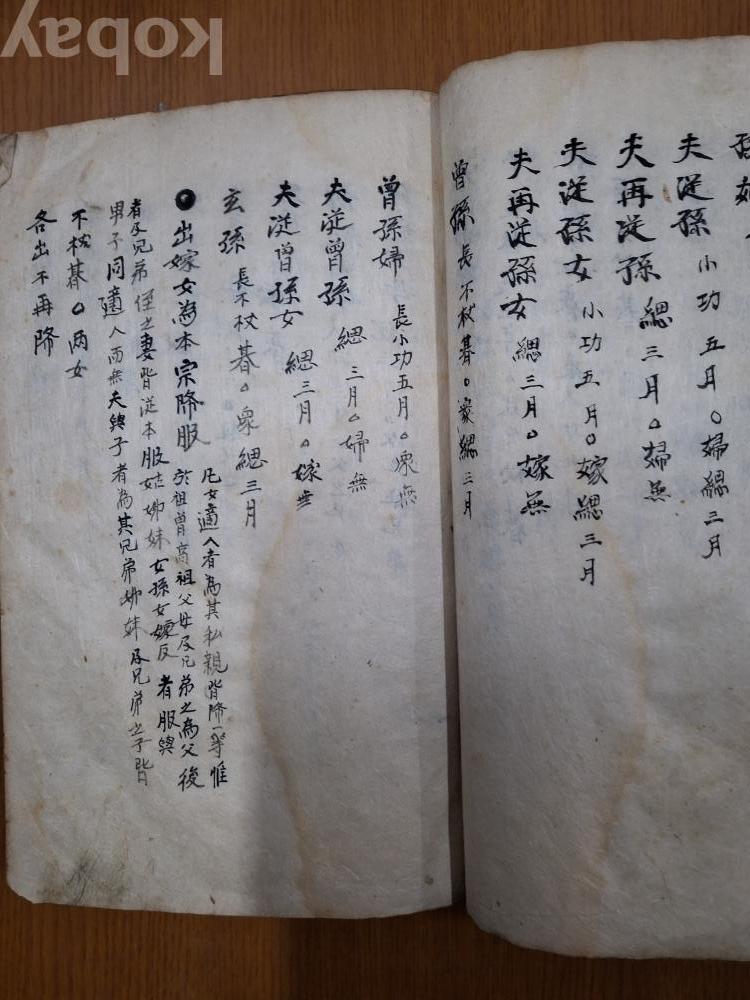 夫從孫 小功五月○婦緦三月
夫再從孫 緦三月○婦無
夫從孫女 小功五月○嫁緦三月
夫再從孫女 緦三月○嫁無
曾孫 長不杖朞○衆緦三月
曾孫婦 長小功五月○衆無
夫從曾孫 緦三月○婦無
夫從曾孫女 緦三月○嫁無
玄孫 長不杖朞○衆緦三月
●出嫁女為本宗降服
凡女適人者為其私親皆降一等惟
於祖曾高祖父母及兄弟之為父後
者及兄弟侄之妻皆從本服姑姊妹女孫女嫁反者服與
男子同適人而無夫與子者為其兄弟姊妹及兄弟之子皆
不杖朞○兩女
各出不再降
kobay